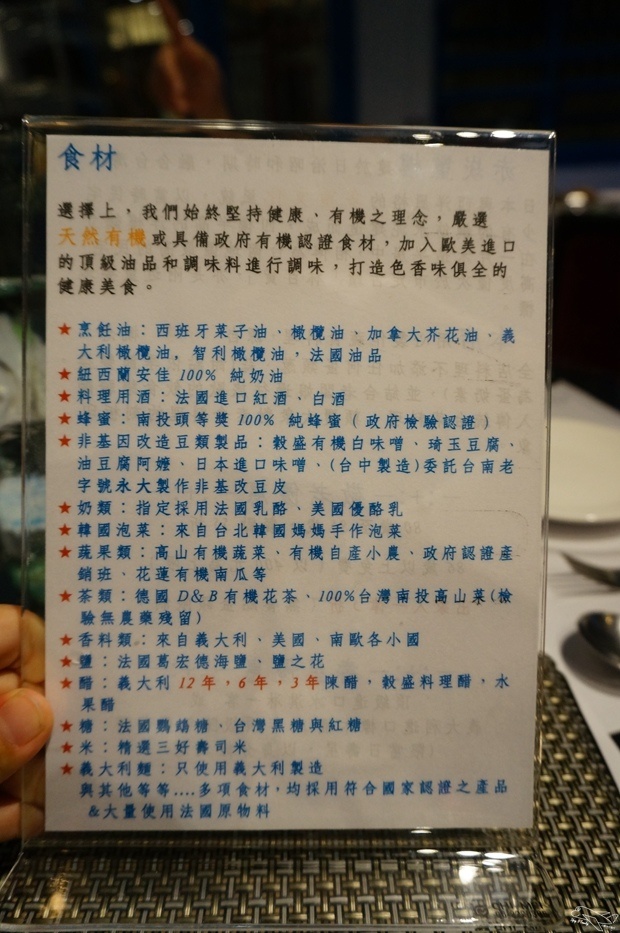 食材
選擇上，我們始終堅持健康、有機之理念，嚴選
天然有機或具備政府有機認證食材，加入歐美進口
的頂級油品和調味料進行調味，打造色香味俱全的
健康美食。
★烹飪油：西班牙菓子油、橄欖油、加拿大芥花油、義
大利橄欖油，智利橄欖油，法國油品
★紐西蘭安佳 100% 純奶油
★料理用酒：法國進口紅酒、白酒
★蜂蜜：南投頭等獎 100% 純蜂蜜（政府檢驗認證）
★非基因改造豆類製品：穀盛有機白味噌、琦玉豆腐、
油豆腐阿嬤、日本進口味噌、(台中製造)委託台南老
字號永大製作非基改豆皮
★奶類：指定採用法國乳酪、美國優酪乳
★韓國泡菜：來自台北韓國媽媽手作泡菜
★蔬果類：高山有機蔬菜、有機自產小農、政府認證產
銷班、花蓮有機南瓜等
★茶類：德國 D&B 有機花茶、100%台灣南投高山菜(檢
驗無農藥殘留)
★香料類：來自義大利、美國、南歐各小國
★鹽：法國葛宏德海鹽、鹽之花
★醋：義大利 12年，6年，3年陳醋，穀盛料理醋，水
果醋
★糖：法國鸚鵡糖、台灣黑糖與紅糖
★米：精選三好壽司米
★義大利麵：只使用義大利製造
與其他等等....多項食材，均採用符合國家認證之產品
&大量使用法國原物料